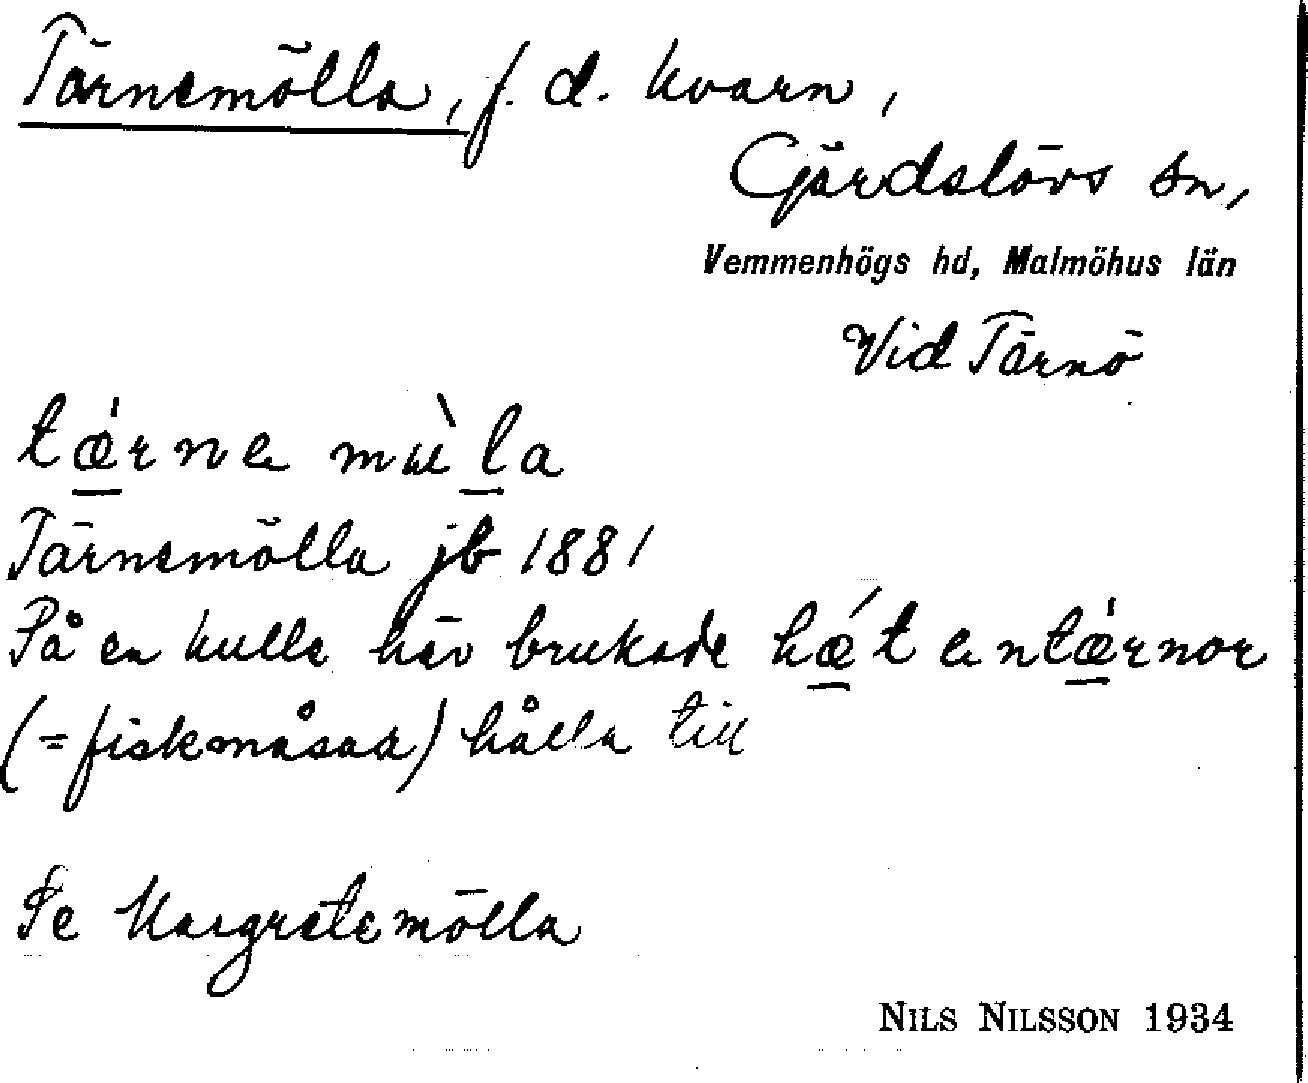 Tärnemölla, f. d. kvarn,
Gärdslövs sn,
Vemmenhögs hd, Malmöhus län
Vid Tärnö
tǽrne mùla
Tärnemölla jb 1881
På en kulle här brukade hǽtentǽrnor
(= fiskmåsar) hålla till
Se Margretemölla
NILS NILSSON 1934